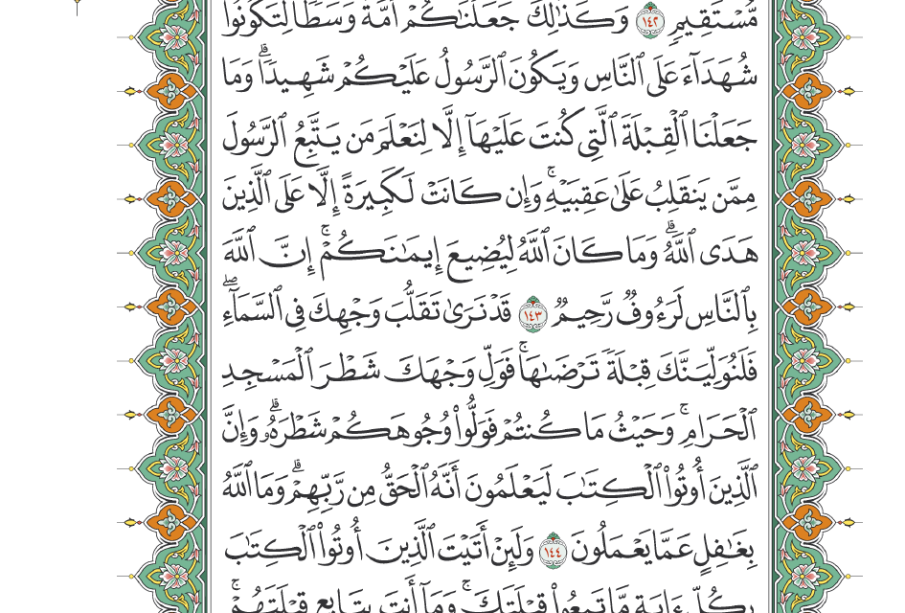 مُّسْتَقِيمٍ ١٤٢ وَكَذَٰلِكَ جَعَلْنَٰكُمْ أُمَّةً وَسَطًا لِّتَكُونُوا۟
شُهَدَآءَ عَلَى ٱلنَّاسِ وَيَكُونَ ٱلرَّسُولُ عَلَيْكُمْ شَهِيدًاۗ وَمَا
جَعَلْنَا ٱلْقِبْلَةَ ٱلَّتِى كُنتَ عَلَيْهَآ إِلَّا لِنَعْلَمَ مَن يَتَّبِعُ ٱلرَّسُولَ
مِمَّن يَنقَلِبُ عَلَىٰ عَقِبَيْهِۚ وَإِن كَانَتْ لَكَبِيرَةً إِلَّا عَلَى ٱلَّذِينَ
هَدَى ٱللَّهُۗ وَمَا كَانَ ٱللَّهُ لِيُضِيعَ إِيمَٰنَكُمْۚ إِنَّ ٱللَّهَ
بِٱلنَّاسِ لَرَءُوفٌ رَّحِيمٌ ١٤٣ قَدْ نَرَىٰ تَقَلُّبَ وَجْهِكَ فِى ٱلسَّمَآءِۖ
فَلَنُوَلِّيَنَّكَ قِبْلَةً تَرْضَىٰهَاۚ فَوَلِّ وَجْهَكَ شَطْرَ ٱلْمَسْجِدِ
ٱلْحَرَامِۚ وَحَيْثُ مَا كُنتُمْ فَوَلُّوا۟ وُجُوهَكُمْ شَطْرَهُۥۗ وَإِنَّ
ٱلَّذِينَ أُوتُوا۟ ٱلْكِتَٰبَ لَيَعْلَمُونَ أَنَّهُ ٱلْحَقُّ مِن رَّبِّهِمْۗ وَمَا ٱللَّهُ
بِغَٰفِلٍ عَمَّا يَعْمَلُونَ ١٤٤ وَلَئِنْ أَتَيْتَ ٱلَّذِينَ أُوتُوا۟ ٱلْكِتَٰبَ
بِكُلِّ ءَايَةٍ مَّا تَبِعُوا۟ قِبْلَتَكَۚ وَمَآ أَنتَ بِتَابِعٍ قِبْلَتَهُمْۚ